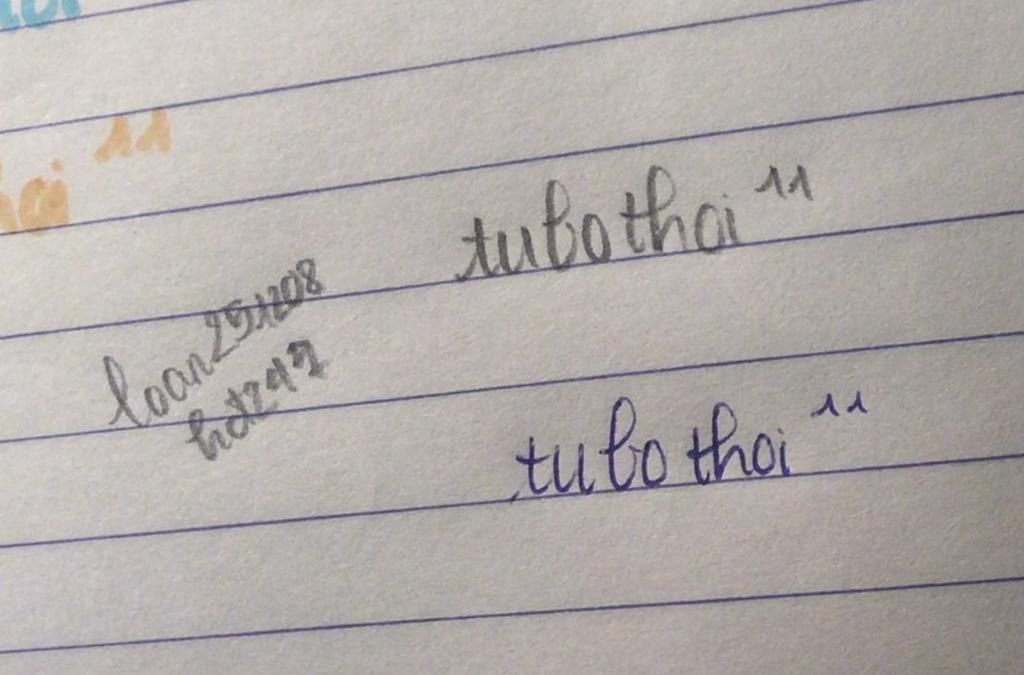 hai "
tubothoi "
loan251208
hdz247
tubothoi "